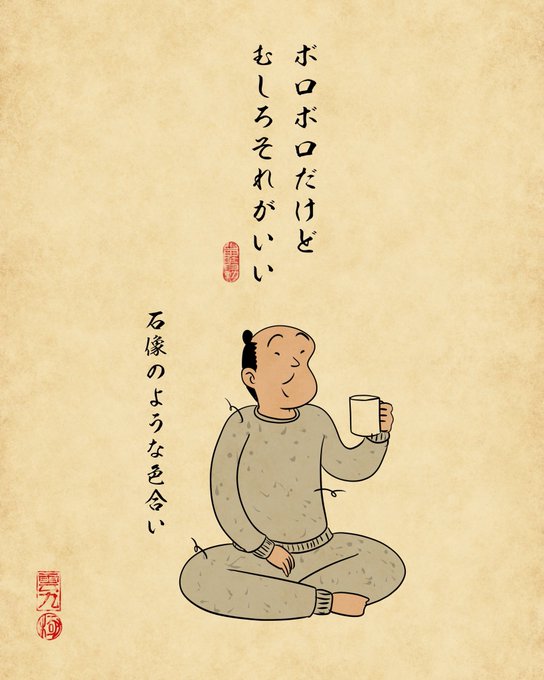 ボロボロだけど
むしろそれがいい
石像のような色合い